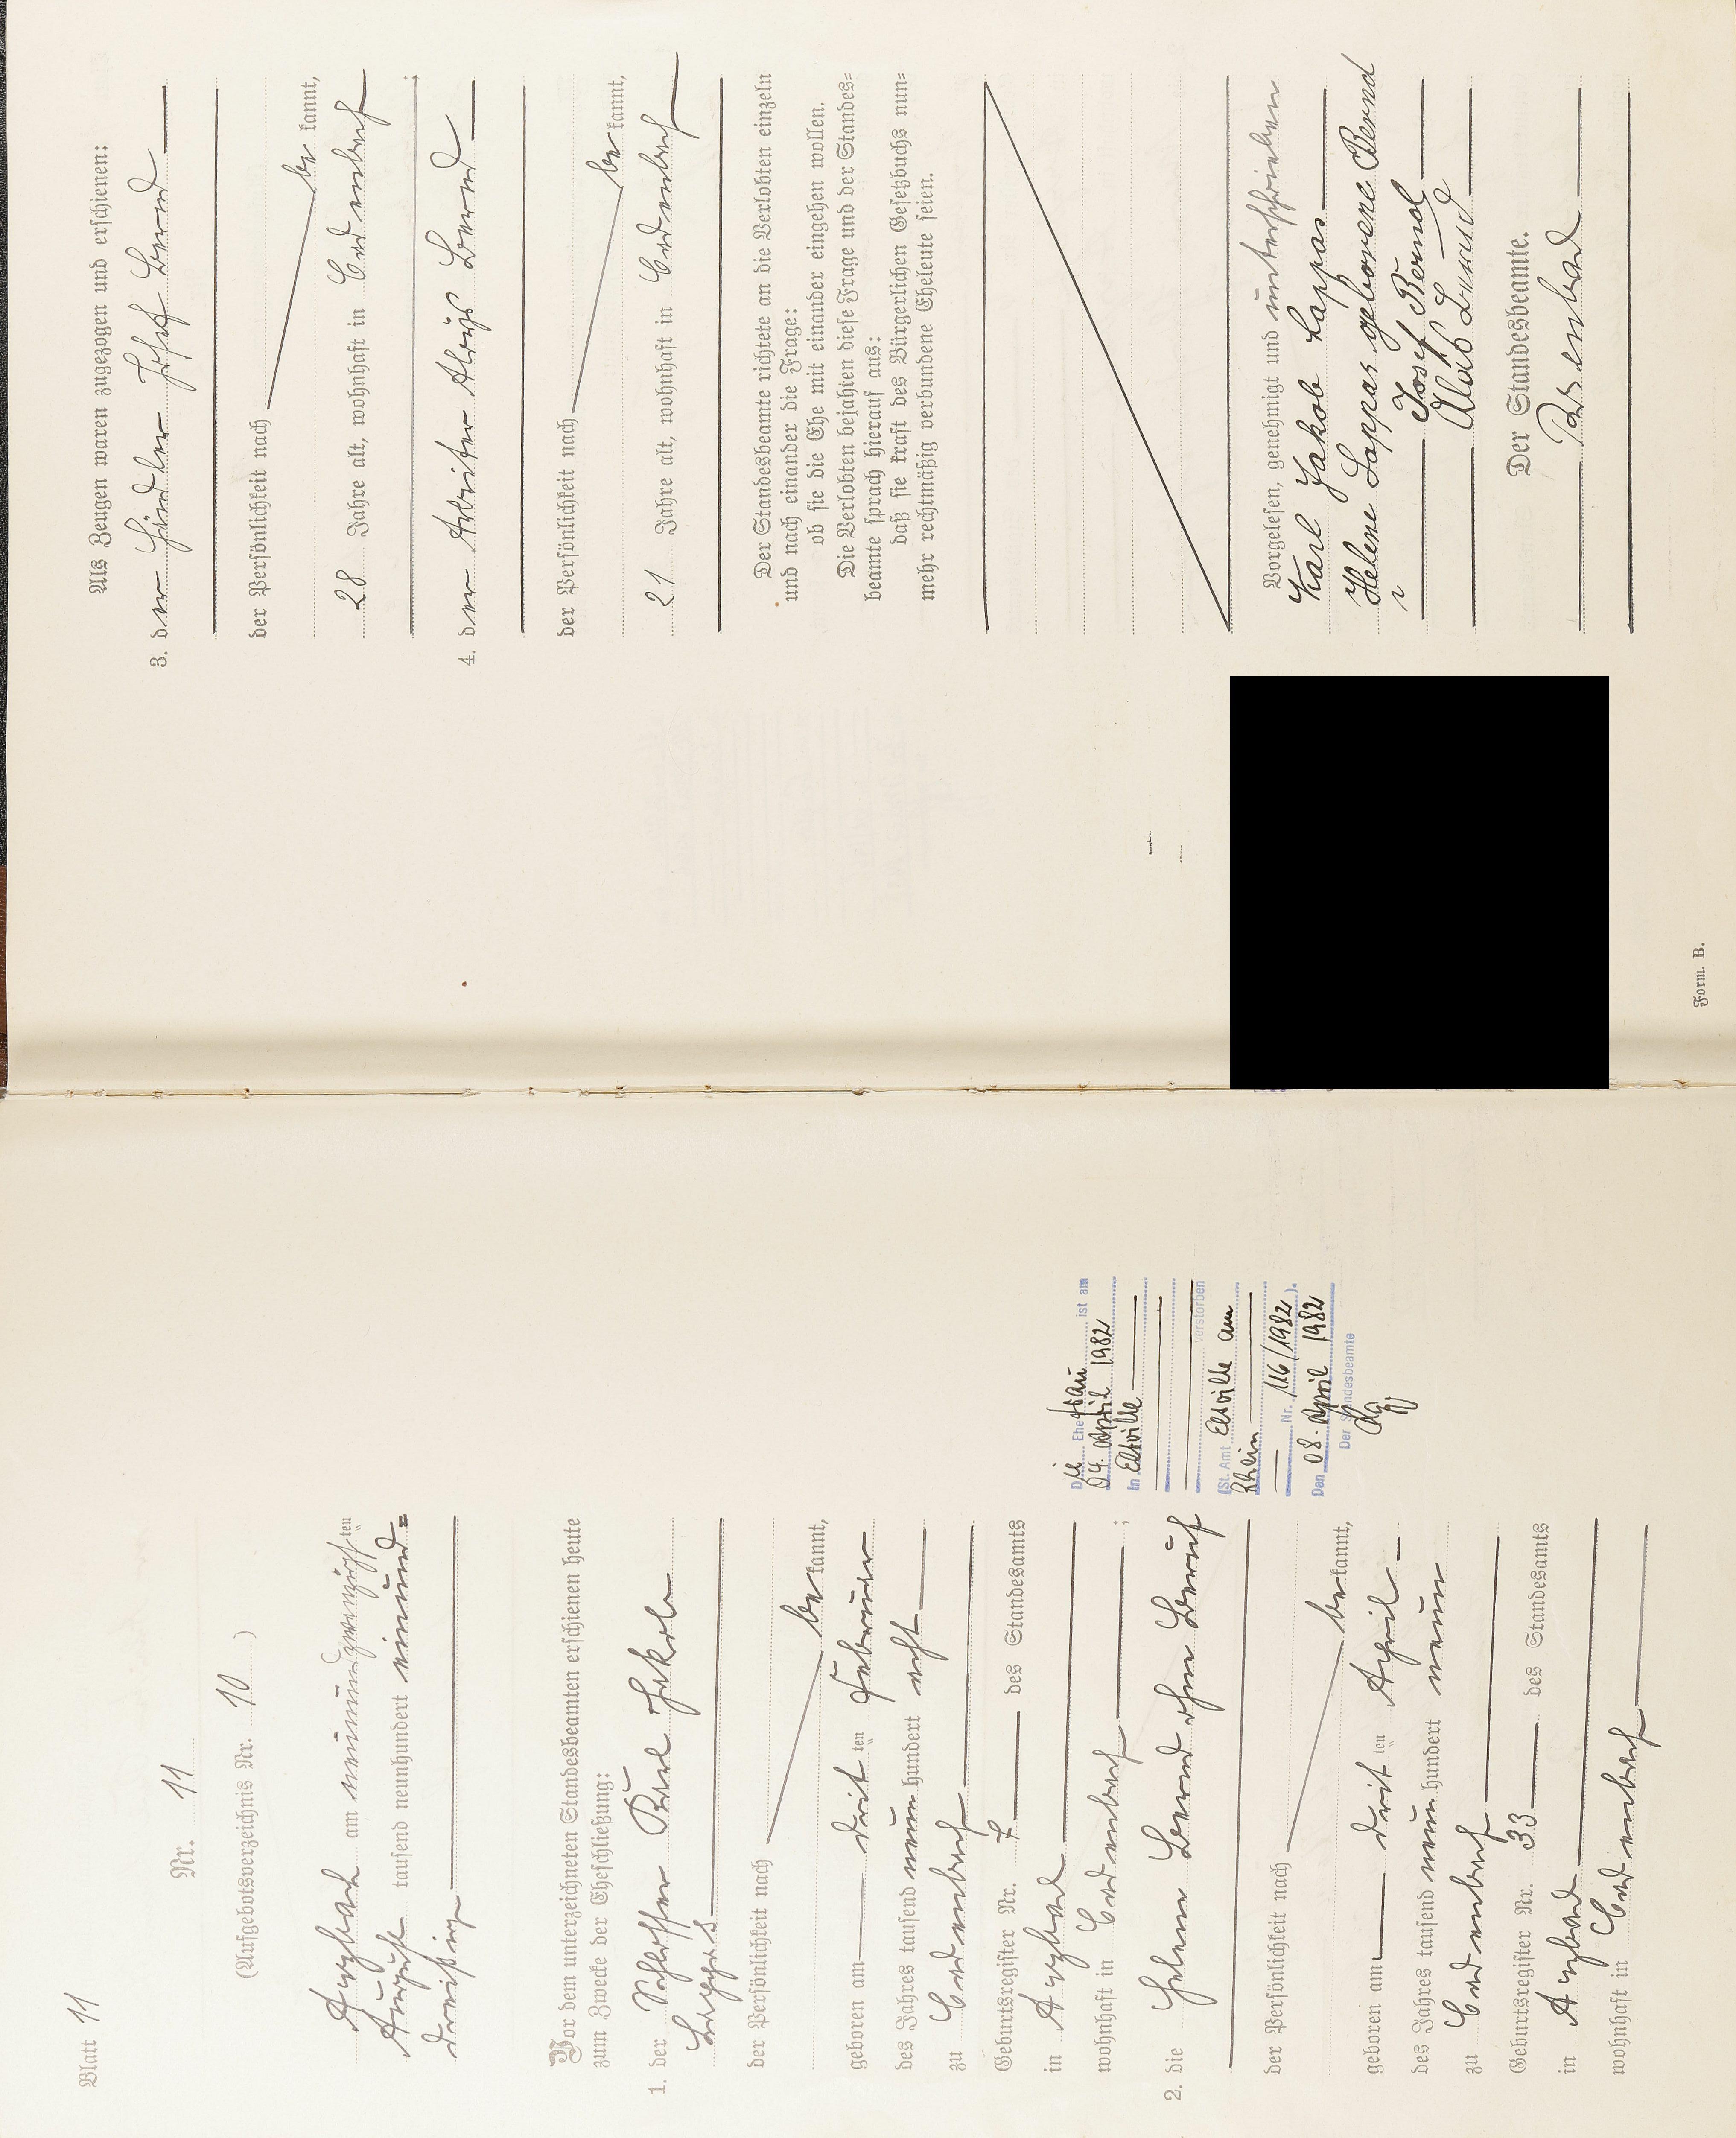 Blatt 11
Nr. 11
(Aufgebotsverzeichnis Nr. 10)
Arzbach am neunundzwanzigsten
August tausend neunhundert einund=
dreißig
Vor dem unterzeichneten Standesbeamten erschienen heute
zum Zwecke der Eheschließung:
1. der Schlosser Karl Jakob
Lappas
der Persönlichkeit nach
be kannt,
geboren am dritten Februar
des Jahres tausend neunhundert acht
zu Cadenbach
Geburtsregister Nr. 7 des Standesamts
in Arzbach
wohnhaft in Cadenbach ;
2. die Helene Bernd ohne Beruf
der Persönlichkeit nach
be kannt,
geboren am dritten April
des Jahres tausend neunhundert neun
zu Cadenbach
Geburtsregister Nr. 33 des Standesamts
in Arzbach
wohnhaft in Cadenbach
Die Ehefrau ist am
04. April 1982
in Eltville
verstorben
(St. Amt Eltville am
Rhein
Nr. 116/1982).
Den 08. April 1982
Der Standesbeamte
Als Zeugen waren zugezogen und erschienen:
3. der Händler Josef Bernd
der Persönlichkeit nach
be kannt,
28 Jahre alt, wohnhaft in Cadenbach
;
4. der Arbeiter Alois Bernd
der Persönlichkeit nach
be kannt,
21 Jahre alt, wohnhaft in Cadenbach
Der Standesbeamte richtete an die Verlobten einzeln
und nach einander die Frage:
ob sie die Ehe mit einander eingehen wollen.
Die Verlobten bejahten diese Frage und der Standes=
beamte sprach hierauf aus:
daß sie kraft des Bürgerlichen Gesetzbuchs nun=
mehr rechtmäßig verbundene Eheleute seien.
Vorgelesen, genehmigt und unterschrieben
Karl Jakob Lappas
Helene Lappas geborene Bernd
Josef Bernd
Alois Bernd
Der Standesbeamte.
Form. B.